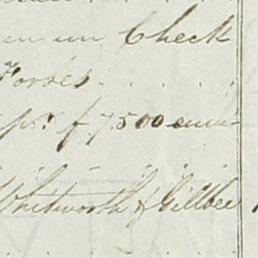 en un Check
Forbes
p^r. £ 7500
Whitworth & Gillbee